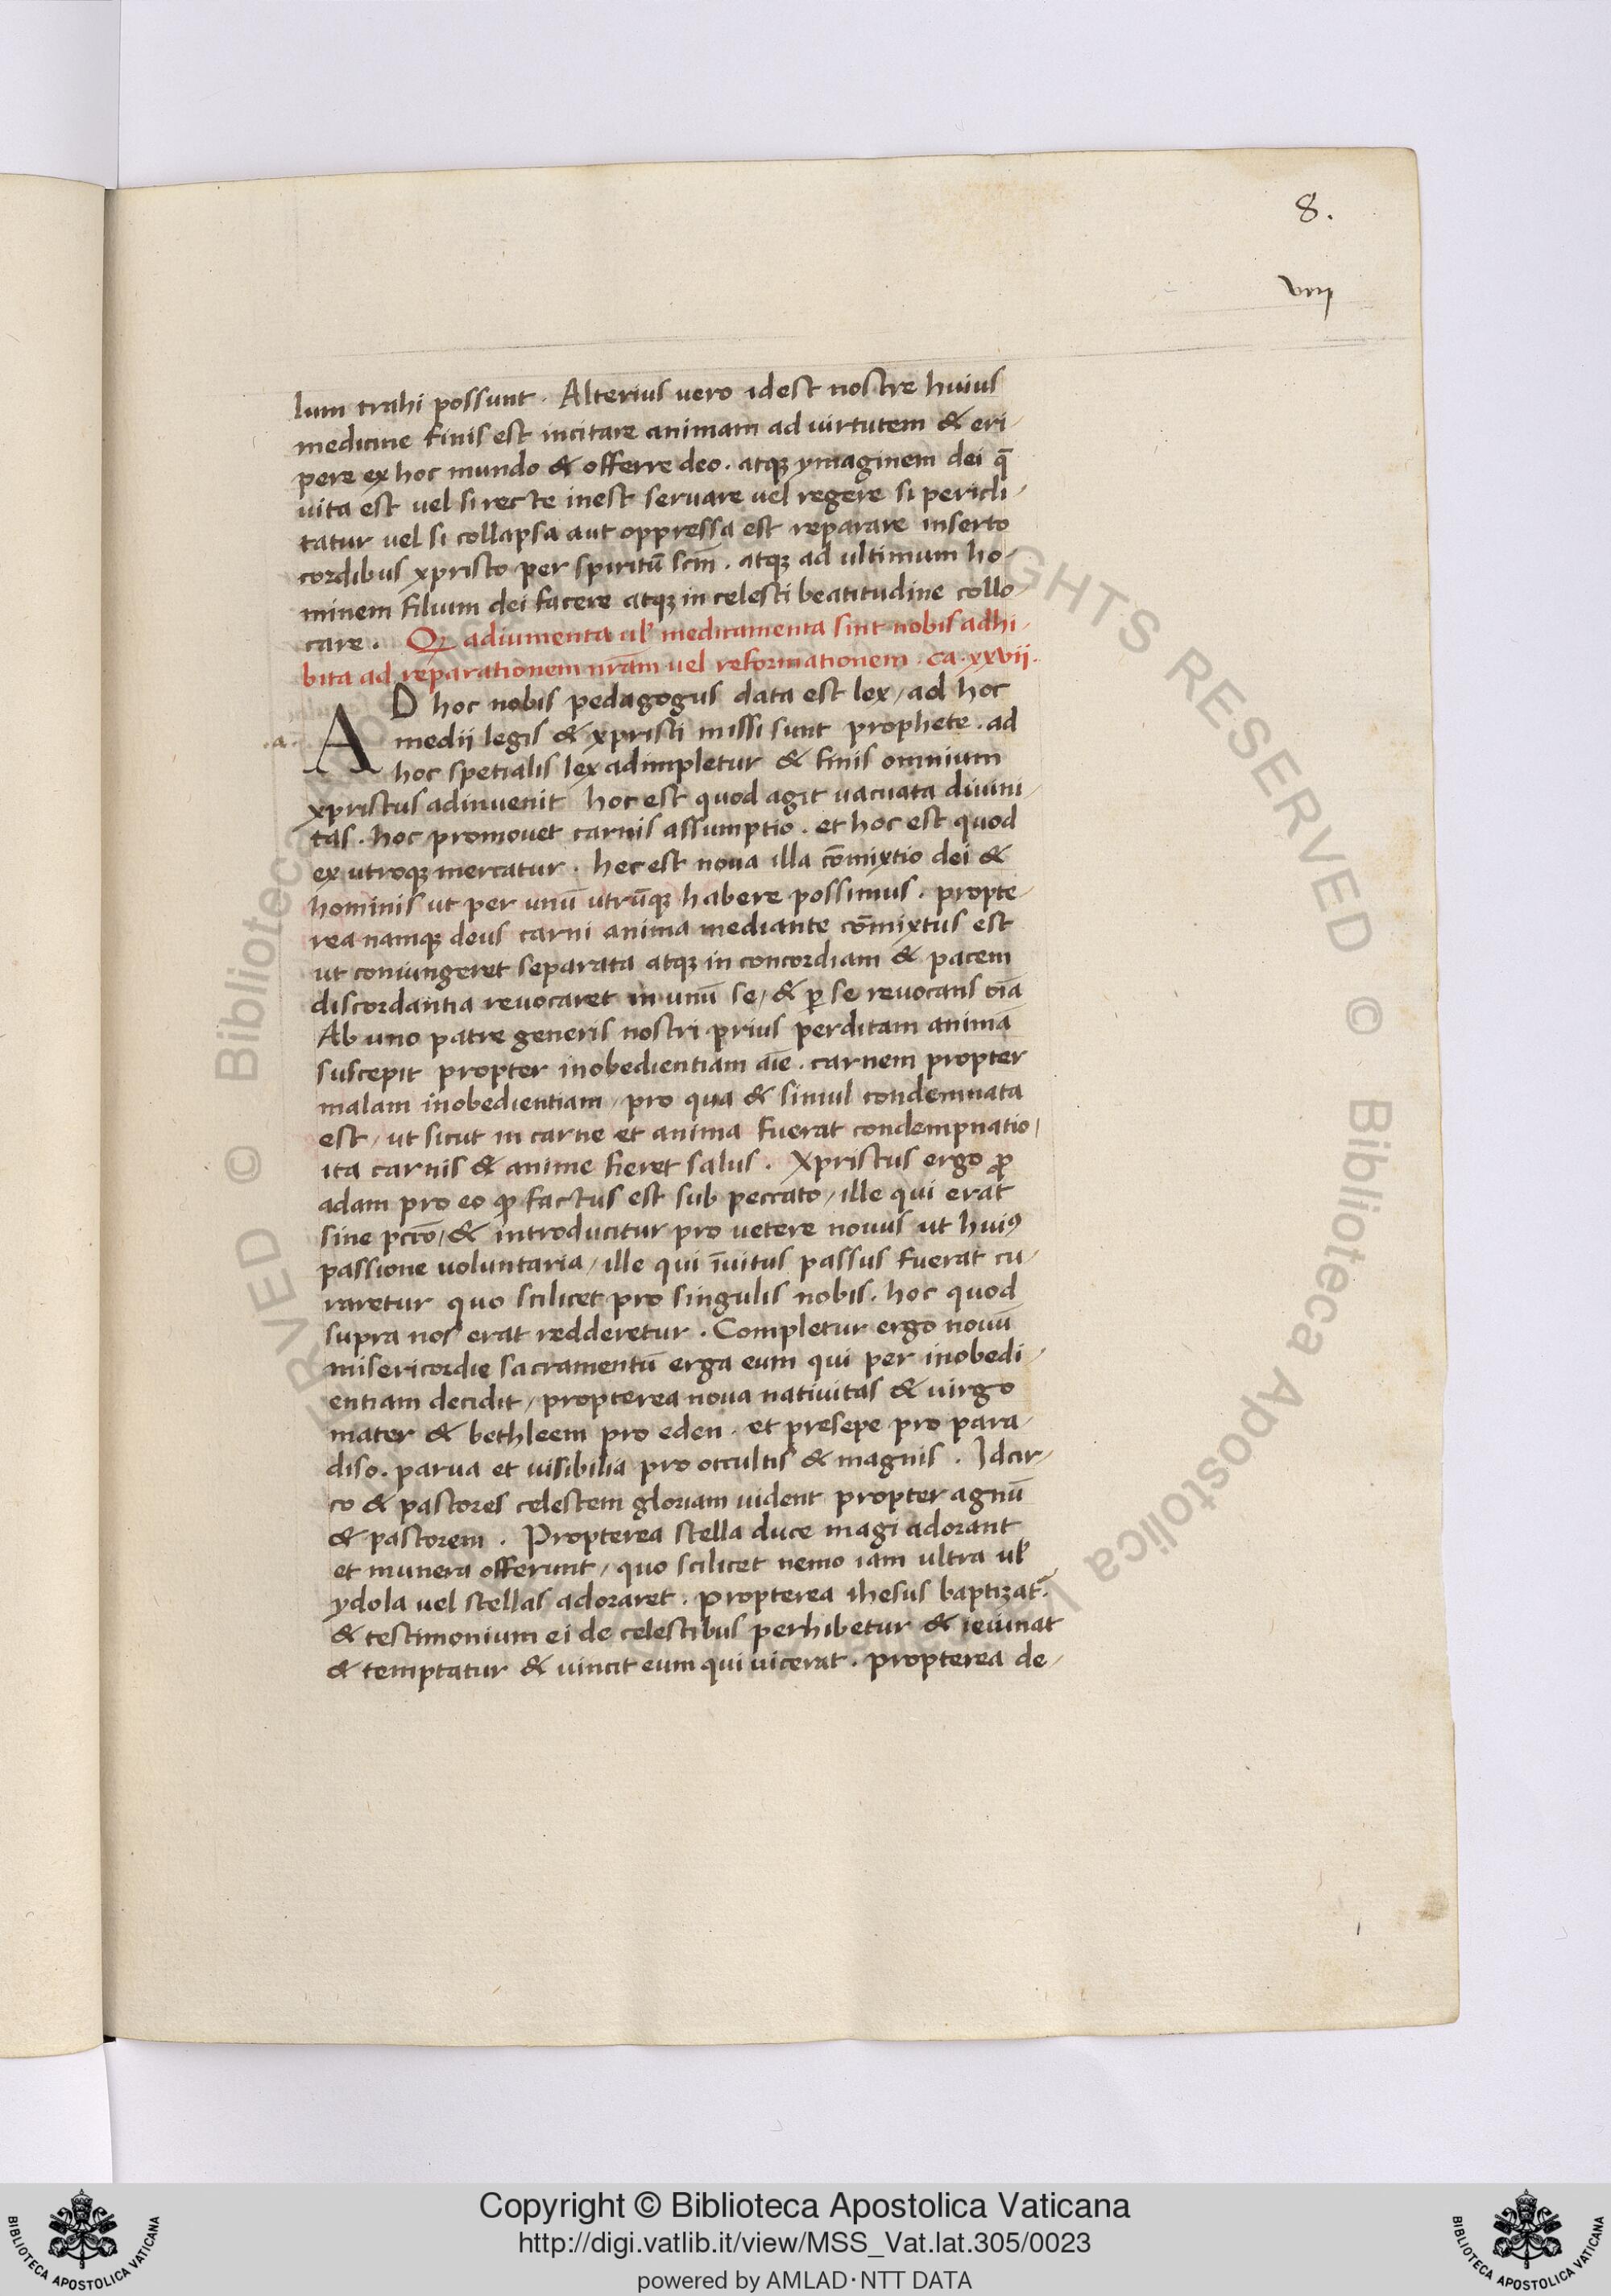 8.
viij
lum trahi possunt. Alterius uero idest nostre huius
medicine finis est incitare animam ad uirtutem & eri-
pere ex hoc mundo & offerre deo. atqꝫ ymaginem dei q̄
uita est vel si recte inest seruare vel regere si pericli-
tatur vel si collapsa aut oppressa est reparare inserto
cordibus xpristo per spiritū scm̄. atqꝫ ad ultimum ho-
minem filium dei facere atqꝫ in celesti beatitudine collo-
care. Qꝫ adiumenta ul̓ medicamenta sint nobis adhi-
bita ad reparationem nr̄am uel reformationem. ca. xxvii.
AD hoc nobis pedagogus data est lex, ad hoc
.a. medii legis & xpristi missi sunt prophete. ad
hoc spetialis lex adimpletur & finis omnium
xpristus adinuenit hoc est quod agit vacuata diuini-
tas. hoc promouet carnis assumptio. et hoc est quod
ex utroqꝫ mercatur. hec est noua illa cōmixtio dei &
hominis ut per unū utrūqꝫ habere possimus. propte-
rea namqꝫ deus carni anima mediante cōmixtus est
ut coniungeret separata atqꝫ in concordiam & pacem
discordantia reuocaret in unū se, & ꝑ se reuocans oīa
Ab uno patre generis nostri prius perditam animā
suscepit propter inobedientiam aīe. carnem propter
malam inobedientiam, pro qua & simul condemnata
est, ut sicut in carne et anima fuerat condempnatio,
ita carnis & anime fieret salus. Xpristus ergo ꝓ
adam pro eo ꝙ factus est sub peccato, ille qui erat
sine pctō, & introducitur pro uetere nouus ut huiꝰ
passione uoluntaria, ille qui īuitus passus fuerat cu-
raretur quo scilicet pro singulis nobis. hoc quod
supra nos erat redderetur. Completur ergo nouū
misericordie sacramentū erga eum qui per inobedi-
entiam decidit, propterea noua natiuitas & uirgo
mater & bethleem pro eden. et presepe pro para-
diso. parua et uisibilia pro occultis & magnis. Idcir-
co & pastores celestem gloriam uident propter agnū
& pastorem. Propterea stella duce magi adorant
et munera offerunt, quo scilicet nemo iam ultra ul̓
ydola uel stellas adoraret. Propterea ihesus baptizat᷑.
& testimonium ei de celestibus perhibetur & ieiunat
& temptatur & uincit eum qui uicerat. propterea de-
Copyright © Biblioteca Apostolica Vaticana
http://digi.vatlib.it/view/MSS_Vat.lat.305/0023
powered by AMLAD·NTT DATA